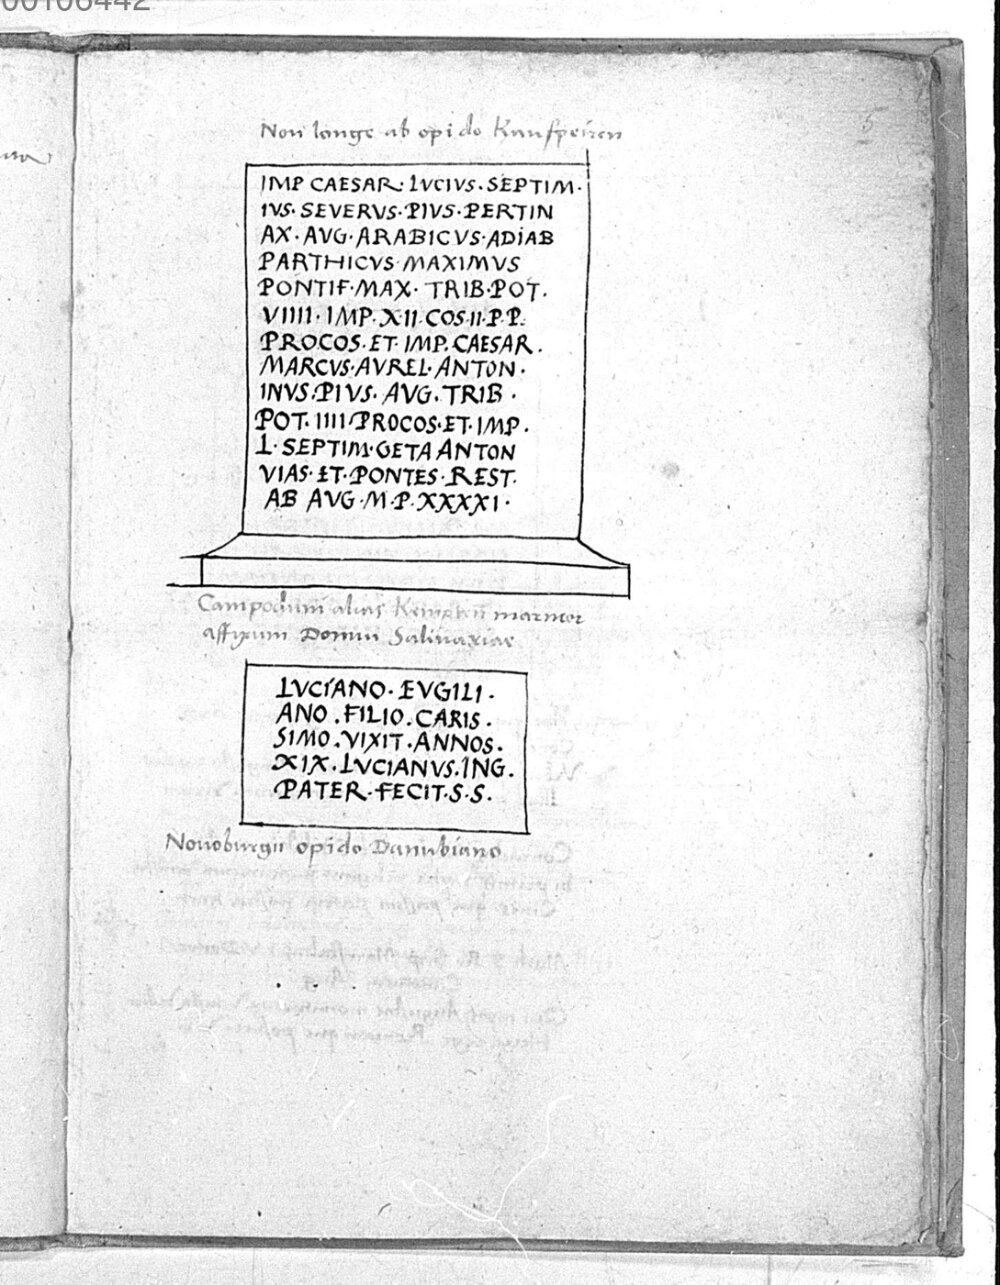 00106442
5
Non longe ab opido Kaufpeiren
IMP CAESAR: LVCIVS. SEPTIM·
IVS· SEVERVS· PIVS· PERTIN
AX· AVG· ARABICVS· ADIAB
PARTHICVS MAXIMVS
PONTIF· MAX· TRIB· POT.
VIIII· IMP. XII COS·II· P· P·
PROCOS. ET· IMP. CAESAR.
MARCVS· AVREL· ANTON·
INVS· PIVS· AVG. TRIB·
POT. IIII PROCOS· ET· IMP.
L· SEPTIM· GETA ANTON
VIAS· ET· PONTES· REST.
AB AVG· M· P· XXXXI·
Campodum alias marmor
affixum Domui
LVCIANO· EVGILI·
ANO. FILIO. CARIS.
SIMO. VIXIT. ANNOS.
XIX. LVCIANVS. ING.
PATER· FECIT· S· S.
Novoburgii opido Danubiano